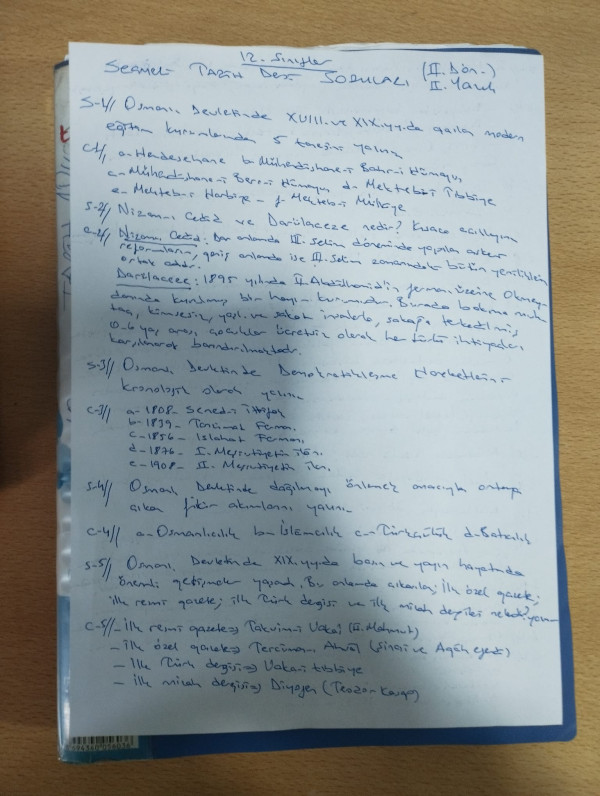 12. Sınıflar
Seçmeli Tarih Dersi Soruları (II. Dön.)
II. Yazılı
S-1// Osmanlı Devletinde XVIII. ve XIX. yy.da açılan modern
eğitim kurumlarından 5 tanesini yazınız
C-1// a-Hendesehane b-Mühendishane-i Bahri Hümayun
c-Mühendishane-i Berri-i Hümayun d-Mekteb-i Tıbbiye
e-Mekteb-i Harbiye - f-Mekteb-i Mülkiye
S-2// Nizamı Cedid ve Darülaceze nedir? Kısaca açıklayın
C-2// Nizamı Cedid: Dar anlamda III. Selim döneminde yapılan askeri
reformların, geniş anlamda ise III. Selim zamanındaki bütün yeniliklerin
ortak adıdır.
Darülaceze: 1895 yılında II. Abdülhamid'in fermanı üzerine Okmey-
danında kurulmuş bir hayır kurumudur. Burada bakıma muh-
taç, kimsesiz, yaşlı ve sakat insanlar, sokağa terkedilmiş
0-6 yaş arası çocuklar ücretsiz olarak her türlü ihtiyaçları
karşılanarak barındırılmaktadır.
S-3// Osmanlı Devletinde Demokratikleşme Hareketlerini
kronolojik olarak yazınız
C-3// a-1808- Sened-i İttifak
b-1839- Tanzimat Fermanı
c-1856- Islahat Fermanı
d-1876- I. Meşrutiyetin ilanı
e-1908- II. Meşrutiyetin ilanı
S-4// Osmanlı Devletinde dağılmayı önlemek amacıyla ortaya
çıkan fikir akımlarını yazınız
C-4// a-Osmanlıcılık b-İslamcılık c-Türkçülük d-Batıcılık
S-5// Osmanlı Devletinde XIX. yy.da basın ve yayın hayatında
önemli gelişmeler yaşandı. Bu anlamda çıkarılan; ilk özel gazete;
ilk resmi gazete; ilk Türk dergisi ve ilk mizah dergileri nelerdir?
C-5// - İlk resmi gazete=> Takvim-i Vakai (II. Mahmut)
- İlk özel gazete=> Tercüman-ı Ahval (Şinasi ve Agah efendi)
- İlk Türk dergisi=> Vakai-i tıbbiye
- İlk mizah dergisi=> Diyojen (Teodor Kasap)